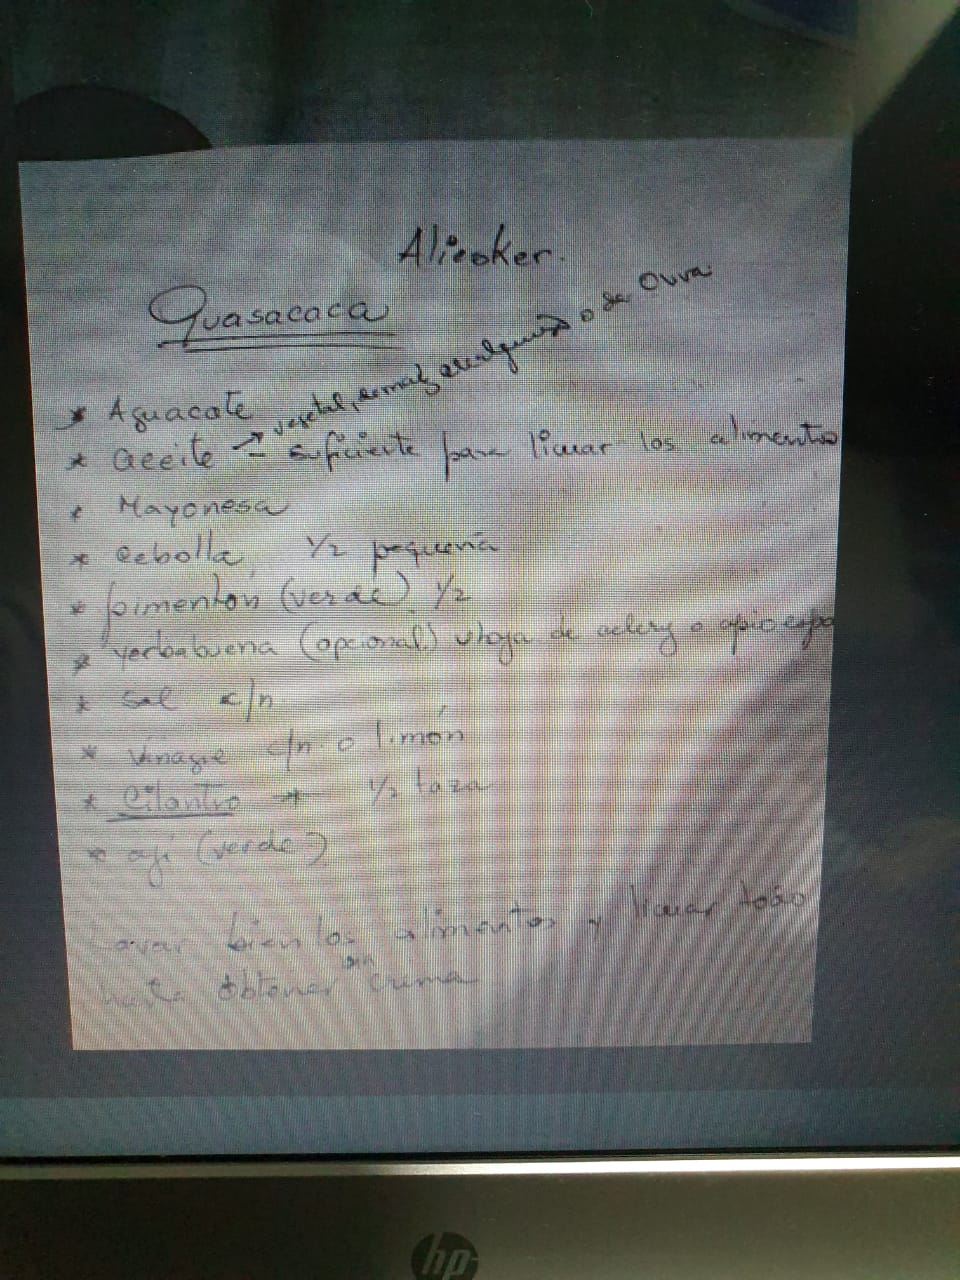 Alicoker.
Guasacaca
vegetal, de maíz, o de Ouva
* Aguacate
* aceite → suficiente para licuar los alimentos
* Mayonesa
* cebolla 1/2 pequeña
* pimentón (verde) 1/2
* yerbabuena (opcional) u hoja de celery o apio
* sal c/n
* vinagre c/n o limón
* Cilantro → 1/2 taza
* ají (verde)
Lavar bien los alimentos y licuar todo
hasta obtener crema
hp